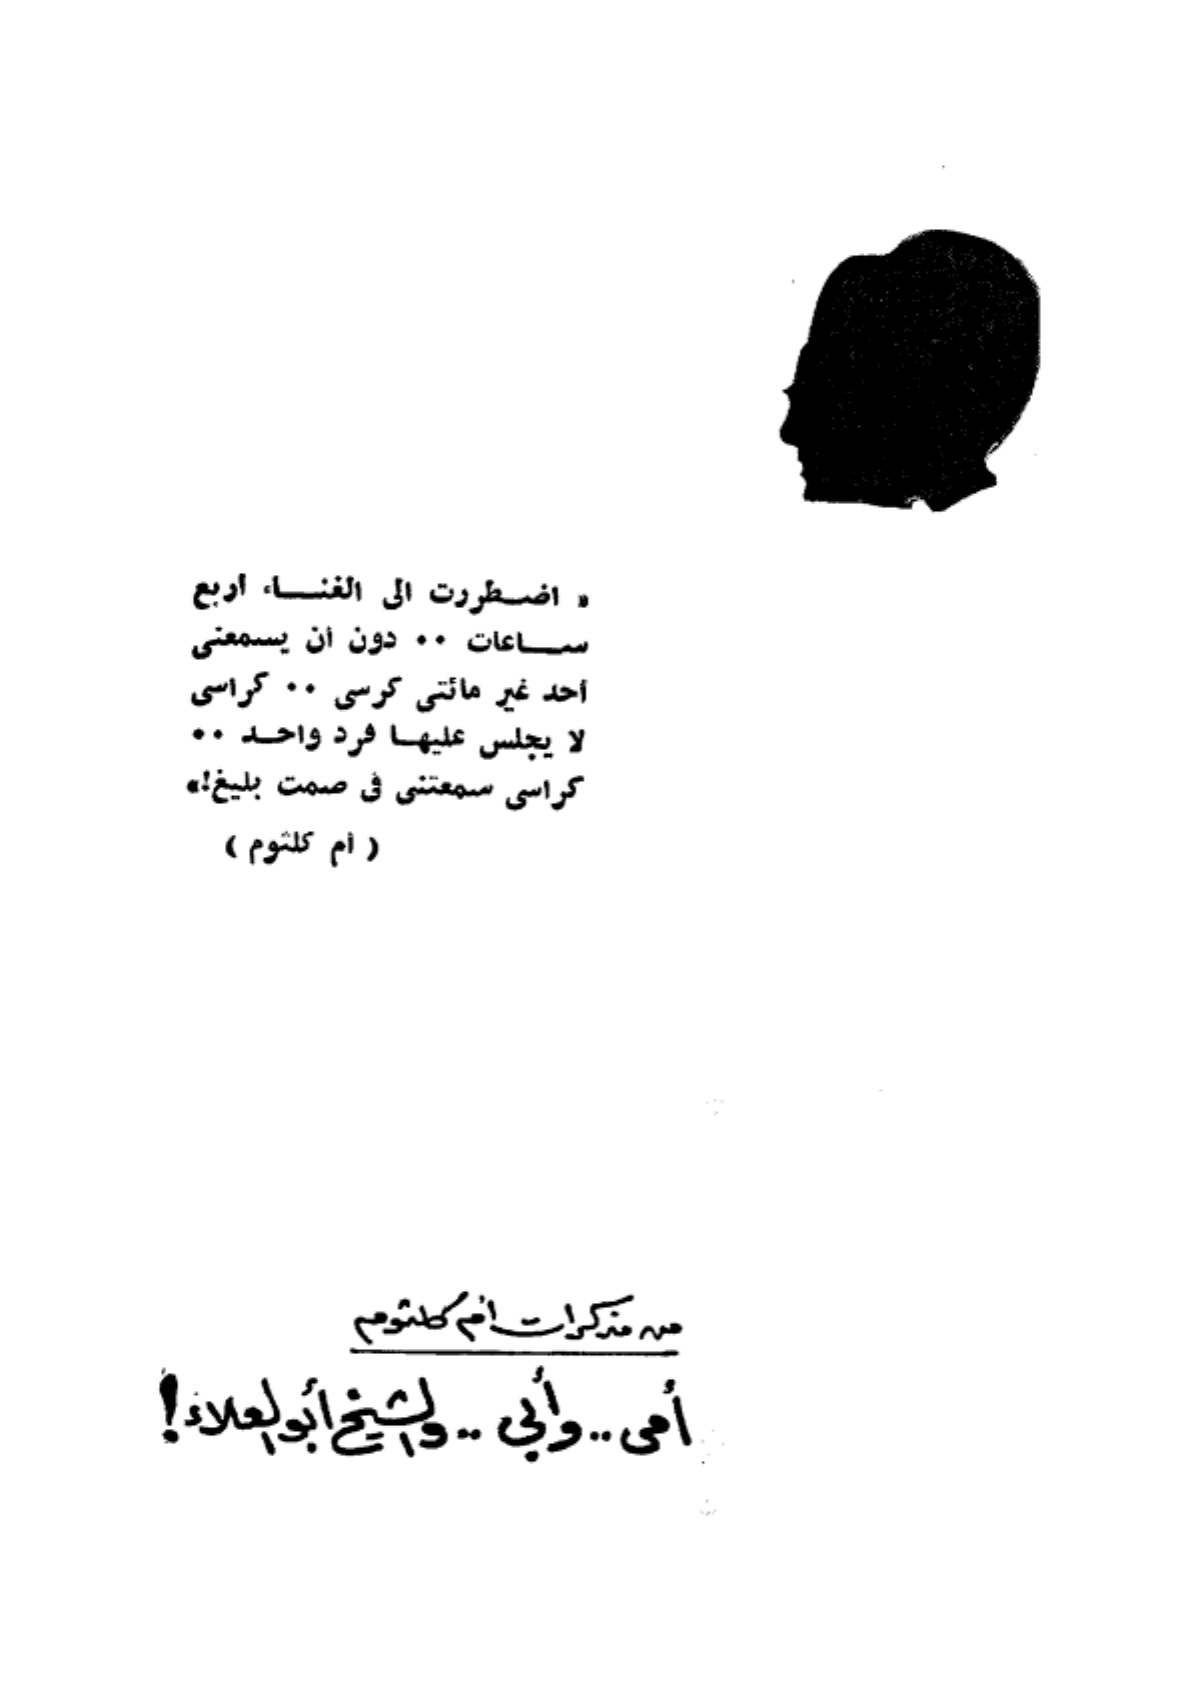 « اضطررت الى الغناء أربع
ساعات ٠٠ دون أن يسمعنى
أحد غير مائتى كرسى ٠٠ كراسى
لا يجلس عليها فرد واحد ٠٠
كراسى سمعتنى فى صمت بليغ!»
( أم كلثوم )
من مذكرات أم كلثوم
أمى .. وأبي .. والشيخ أبو العلاء !